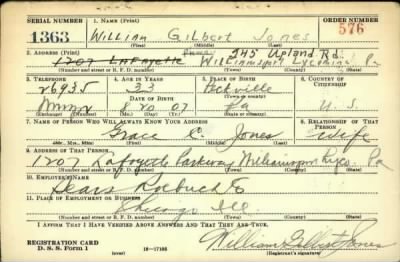 SERIAL NUMBER 1. NAME (Print) ORDER NUMBER
1363 William Gilbert Jones 576
(First) (Middle) (Last)
2. ADDRESS (Print) 245 Upland Rd.
1207 Lafayette Williamsport Lycoming Pa
(Number and street or R. F. D. number) (Town) (County) (State)
3. TELEPHONE 4. AGE IN YEARS 5. PLACE OF BIRTH 6. COUNTRY OF CITIZENSHIP
26935 33 Peckville
DATE OF BIRTH
8 20 07 Pa U. S.
(Exchange) (Number) (Mo.) (Day) (Yr.) (State or country)
7. NAME OF PERSON WHO WILL ALWAYS KNOW YOUR ADDRESS 8. RELATIONSHIP OF THAT PERSON
Grace C. Jones Wife
(Mr., Mrs., Miss) (First) (Middle) (Last)
9. ADDRESS OF THAT PERSON
1207 Lafayette Parkway Williamsport Lyco. Pa
(Number and street or R. F. D. number) (Town) (County) (State)
10. EMPLOYER'S NAME
Sears Roebuck
11. PLACE OF EMPLOYMENT OR BUSINESS
Chicago Ill
(Number and street or R. F. D. number) (Town) (County) (State)
I AFFIRM THAT I HAVE VERIFIED ABOVE ANSWERS AND THAT THEY ARE TRUE.
REGISTRATION CARD
D. S. S. Form 1 (over) 16—17105 William Gilbert Jones
(Registrant's signature)